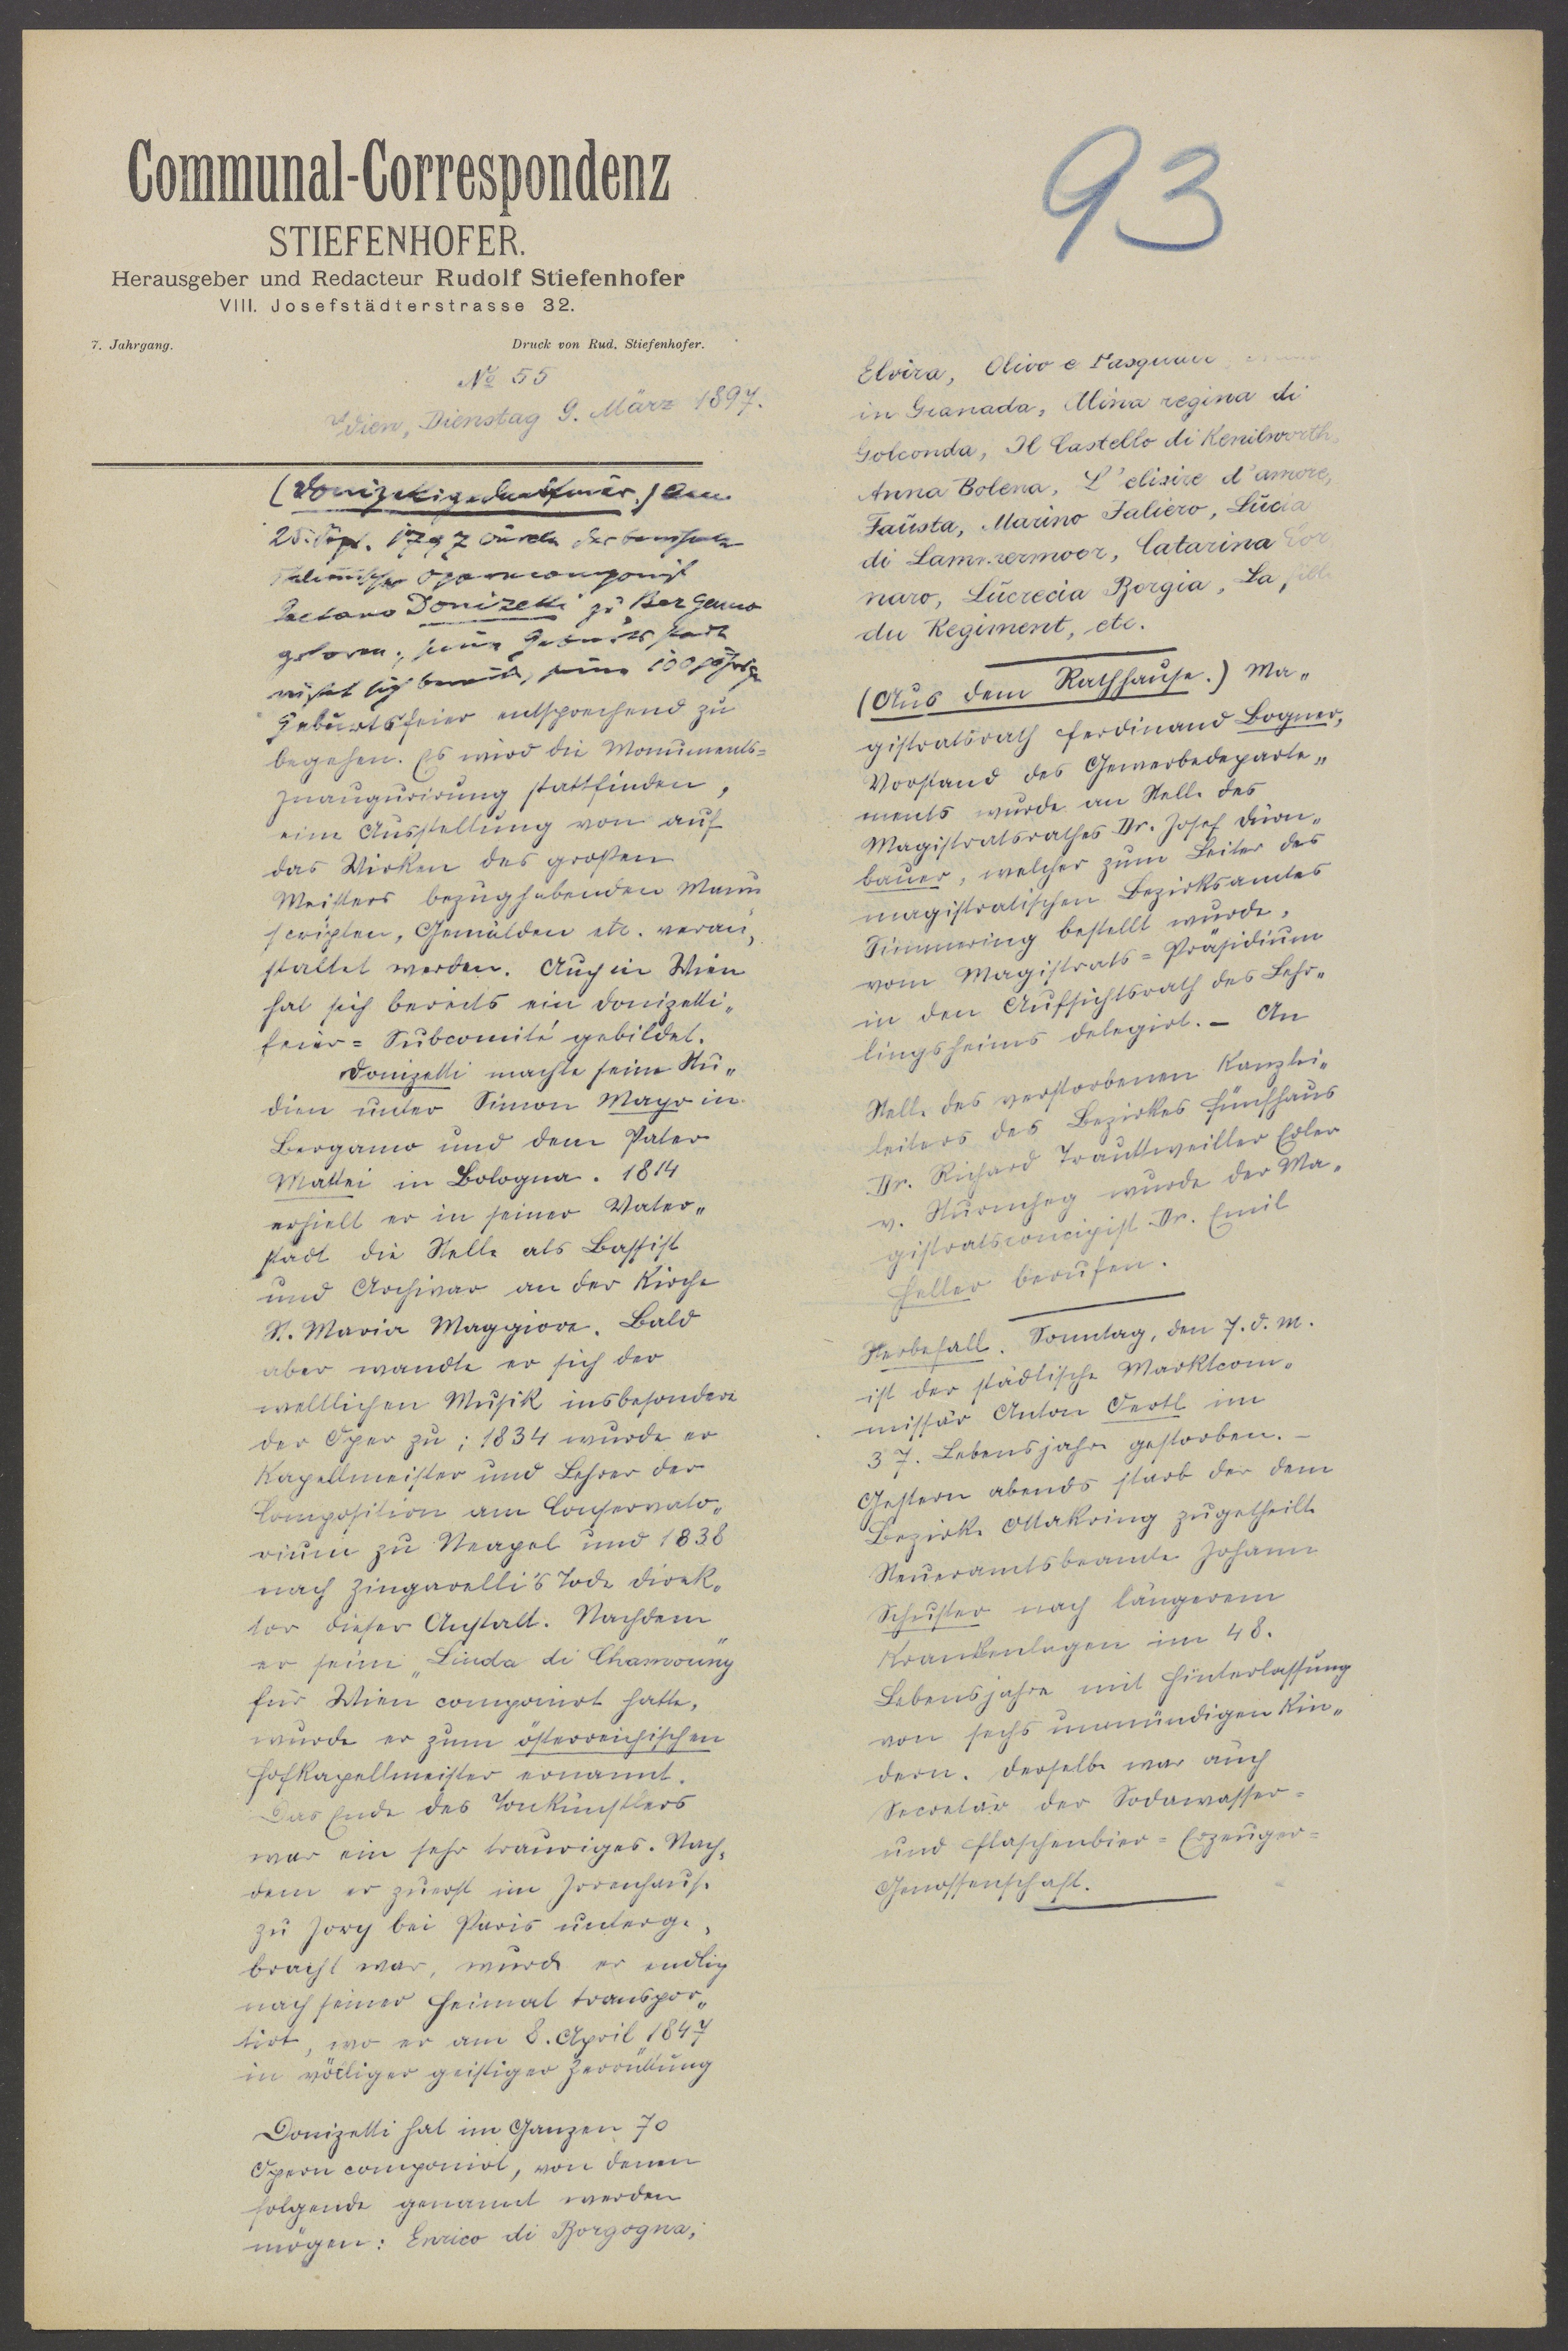 Communal-Correspondenz
STIEFENHOFER.
Herausgeber und Redacteur Rudolf Stiefenhofer
VIII. Josefstädterstrasse 32.
7. Jahrgang.
Druck von Rud. Stiefenhofer.
№ 55
Wien, Dienstag 9. März 1897.
(Donizettigedenkfeier.) Am
25. Sept. 1797 wurde der berühmte
italienische Operncomponist
Gaetano Donizetti zu Bergamo
geboren; seine Geburtsstadt
rüstet sich bereits, seine 100jährige
Geburtsfeier entsprechend zu
begehen. Es wird die Monuments=
Inaugurirung stattfinden,
eine Ausstellung von auf
das Wirken des großen
Meisters bezughabenden Manu
scripten, Gemälden etc. veran„
staltet werden. Auch in Wien
hat sich bereits ein Donizetti„
feier=Subcomité gebildet.
Donizetti machte seine Stu„
dien unter Simon Mayr in
Bergamo und dem Pater
Mattei in Bologna. 1814
erhielt er in seiner Vater„
stadt die Stelle als Bassist
und Archivar an der Kirche
St. Maria Maggiore. Bald
aber wandte er sich der
weltlichen Musik insbesondere
der Oper zu; 1834 wurde er
Kapellmeister und Lehrer der
Composition am Conservato„
rium zu Neapel und 1838
nach Zingarelli's Tode Direk„
tor dieser Anstalt. Nachdem
er seine „Linda di Chamouny"
für Wien componirt hatte,
wurde er zum österreichischen
Hofkapellmeister ernannt.
Das Ende des Tonkünstlers
war ein sehr trauriges. Nach„
dem er zuerst im Irrenhause
zu Ivry bei Paris unterge„
bracht war, wurde er endlich
nach seiner Heimat transpor„
tirt, wo er am 8. April 1847
in völliger geistiger Zerrüttung
Donizetti hat im Ganzen 70
Opern componirt, von denen
folgende genannt werden
mögen: Enrico di Borgogna,
93
Elvira, Olivo e Pasquale
in Granada, Alina regina di
Golconda, Il Castello di Kenilworth,
Anna Bolena, L'elisire d'amore,
Faŭsta, Marino Faliero, Lŭcia
di Lammermoor, Catarina Cor
naro, Lŭcrecia Borgia, La fille
du Regiment, etc.
(Aus dem Rathhause.) Ma„
gistratsrath Ferdinand Bogner,
Vorstand des Gewerbedeparte„
ments wurde an Stelle des
Magistratsrathes Dr. Josef Dürn„
bauer, welcher zum Leiter des
magistratischen Bezirksamtes
Simmering bestellt wurde,
vom Magistrats=Präsidium
in den Aufsichtsrath des Lehr„
lingsheims delegirt. – An
Stelle des verstorbenen Kanzlei„
leiters des Bezirkes Fünfhaus
Dr. Richard Trauttweiller Edler
v. Sturmheg wurde der Ma„
gistratsconcipist Dr. Emil
Heller berufen.
Sterbefall. Sonntag, den 7. d. M.
ist der städtische Marktcom„
missär Anton Oertl im
37. Lebensjahre gestorben. –
Gestern abends starb der dem
Bezirke Ottakring zugetheilte
Steueramtsbeamte Johann
Schuster nach längerem
Krankenlagen im 48.
Lebensjahre mit Hinterlassung
von sechs unmündigen Kin„
dern. Derselbe war auch
Secretär der Sodawasser=
und Flaschenbier=Erzeuger=
Genossenschaft.